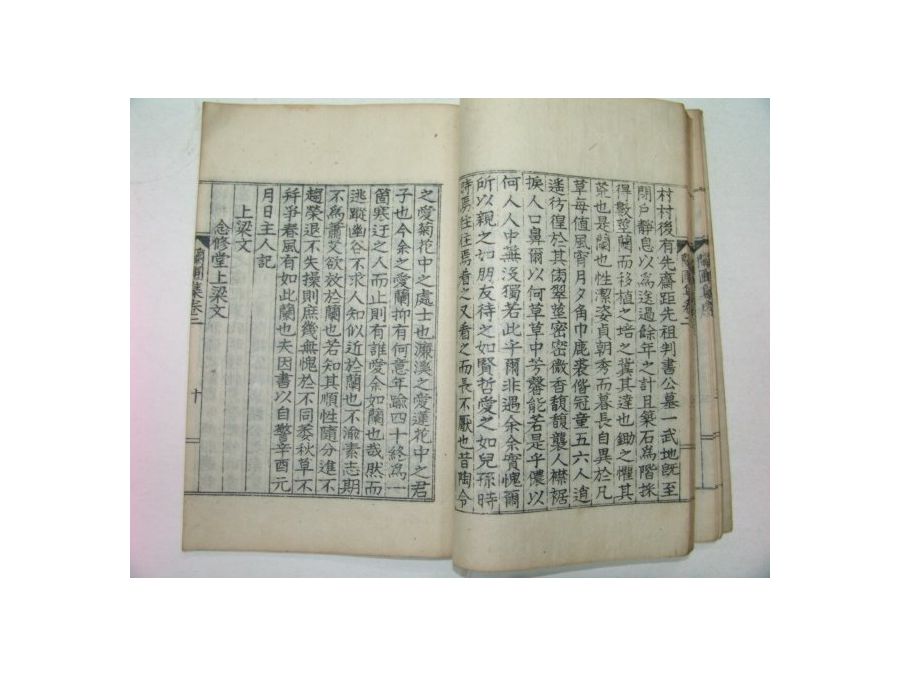 村村後有先齋距先祖判書公墓一武地旣至
閉戶靜息以爲送過餘年之計且築石爲階採
得數莖蘭而移植之培之冀其達也鋤之懼其
荒也是蘭也性潔姿貞朝秀而暮長自異於凡
草每値風宵月夕角巾鹿裘偕冠童五六人逍
遙彷徨於其傍翠莖密密微香馥馥襲人襟裾
捩人口鼻爾以何草草中芳馨能若是乎儂以
何人人中無沒獨若此乎爾非遇余余實愧爾
所以親之如朋友待之如賢哲愛之如兒孫時
時焉往往焉看之又看之而長不厭也昔陶令
之愛菊花中之處士也濂溪之愛蓮花中之君
子也今余之愛蘭抑有何意年踰四十終爲一
箇寒迂之人而止則有誰愛余如蘭也哉然而
逃蹤幽谷不求人知似近於蘭也不渝素志期
不爲蕭艾欲效於蘭也若知其順性隨分進不
趨榮退不失操則庶幾無愧於不同委秋草不
肯爭春風有如此蘭也夫因書以自警辛酉元
月日主人記
上梁文
念修堂上梁文
蘭圃集卷二
十